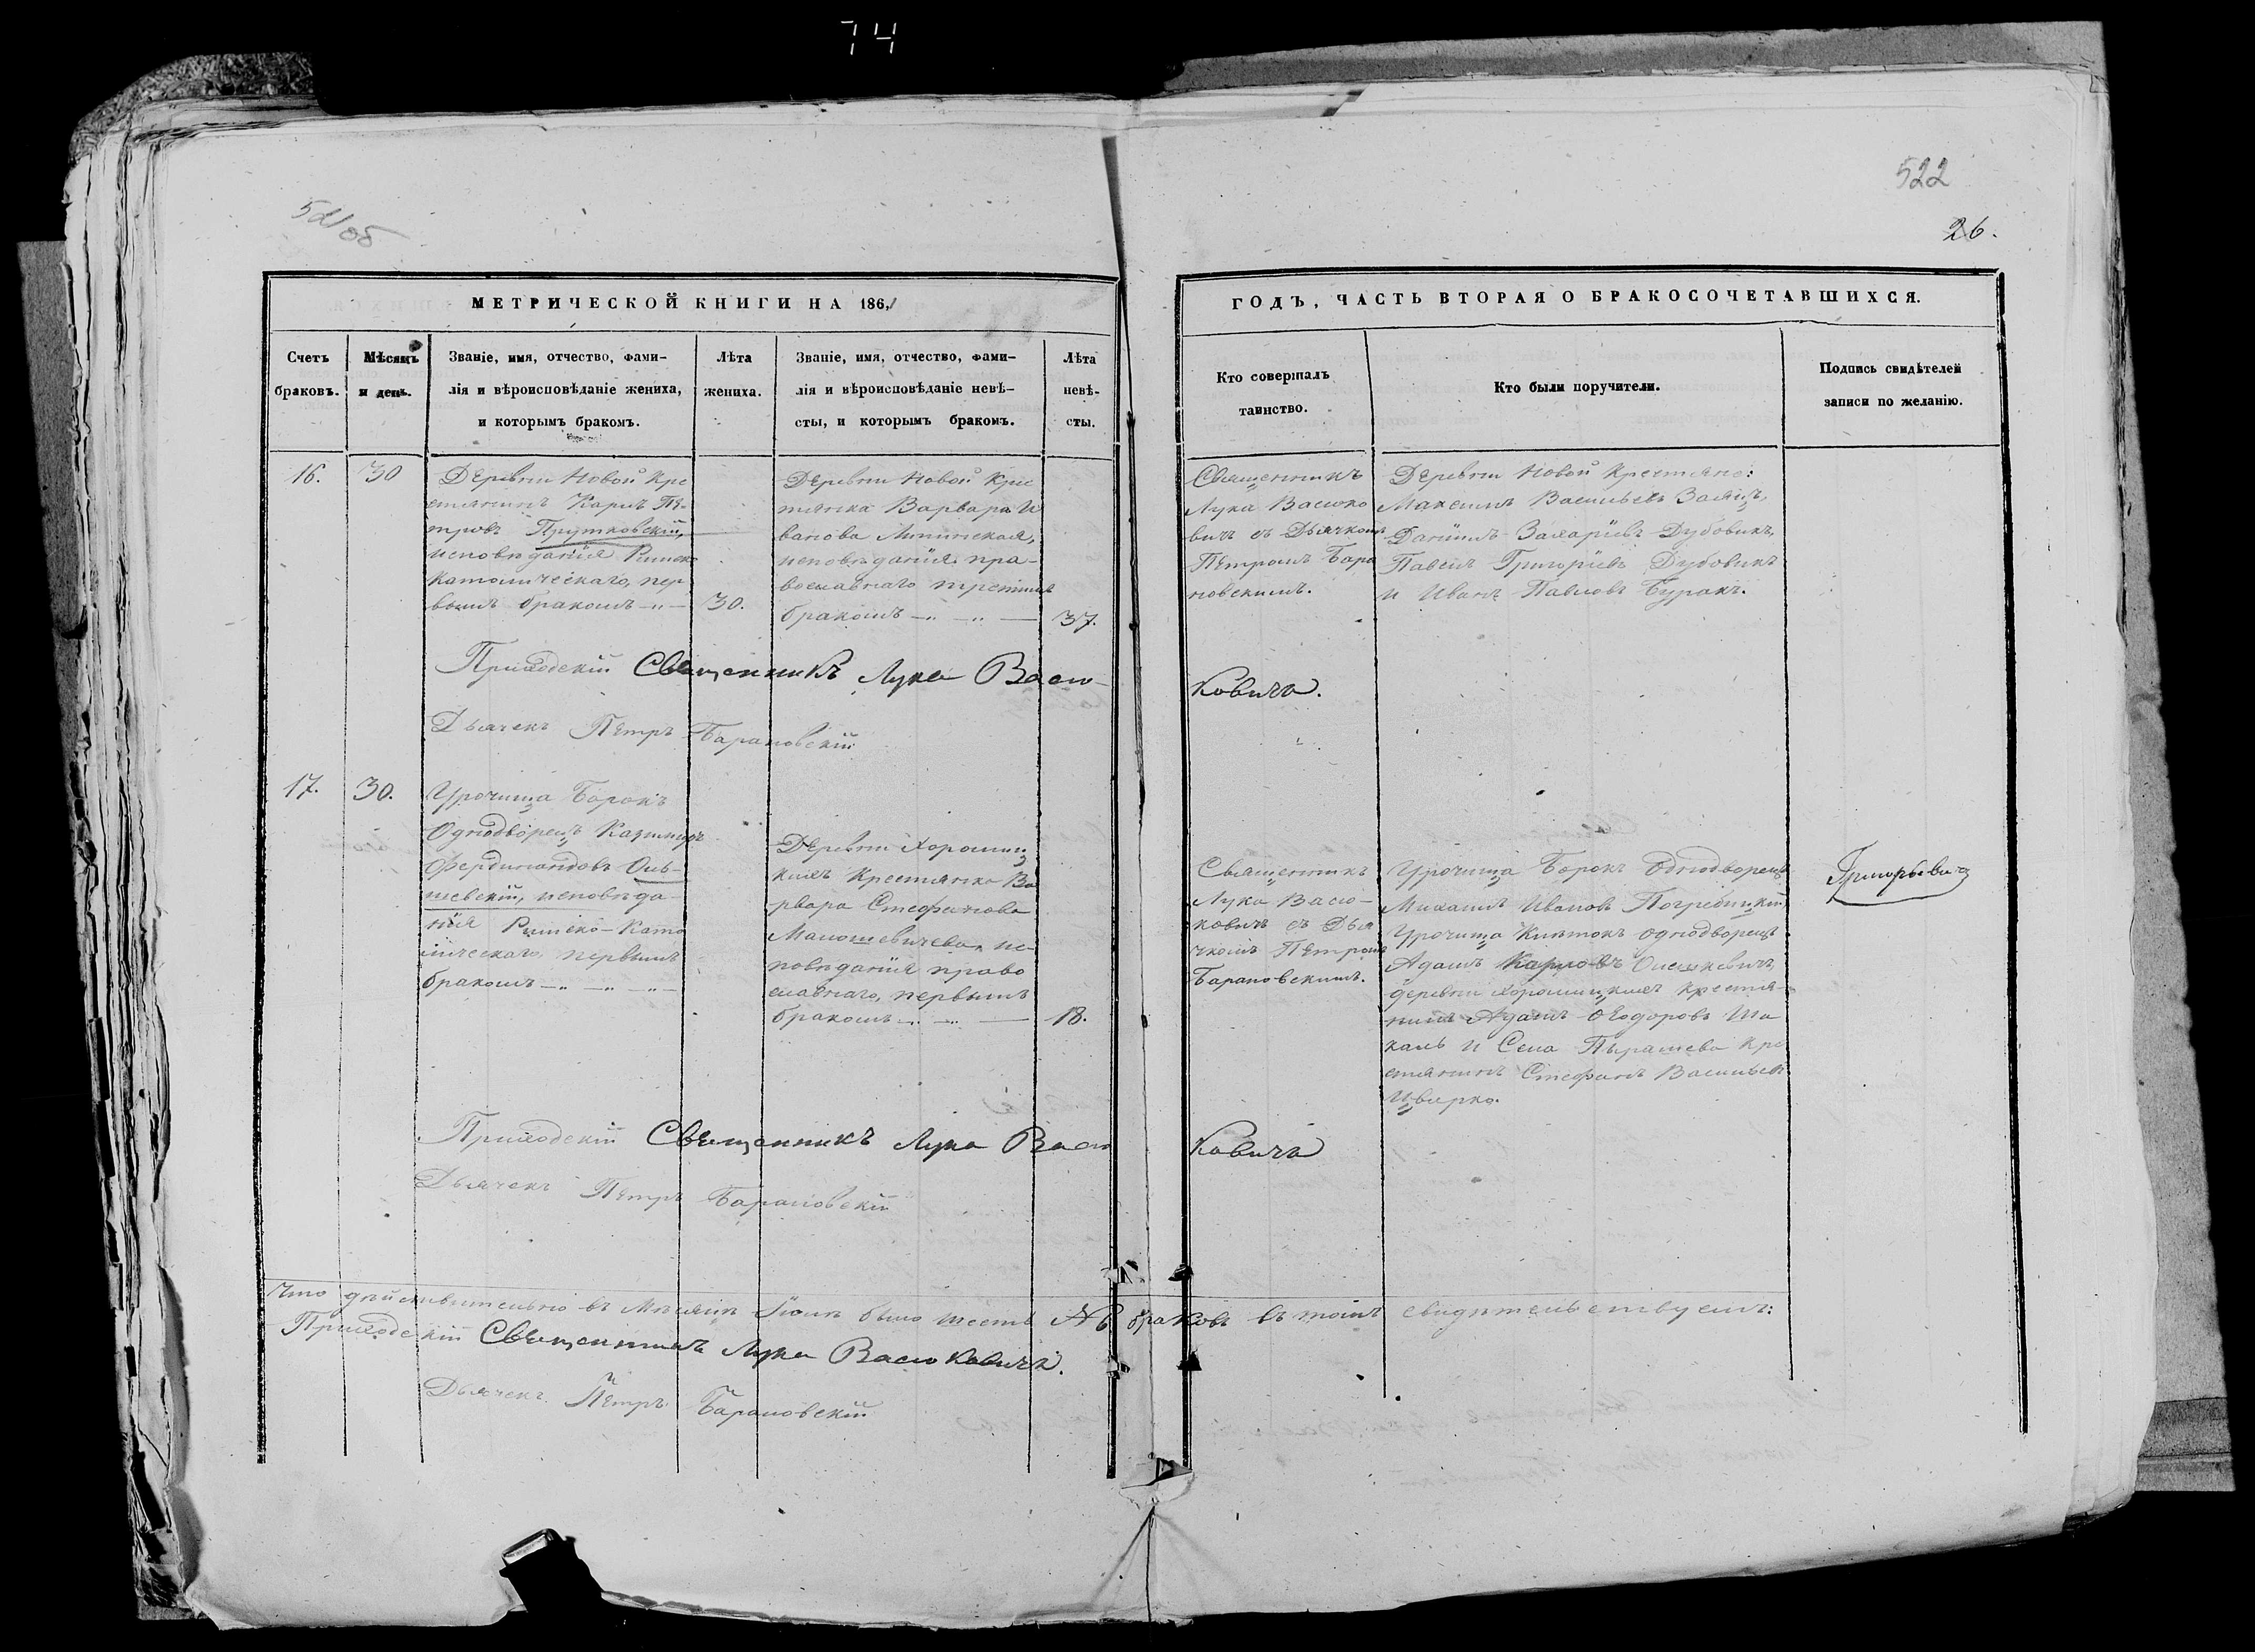 74
521об
522
26.
МЕТРИЧЕСКОЙ КНИГИ НА 1861
ГОДЪ, ЧАСТЬ ВТОРАЯ О БРАКОСОЧЕТАВШИХСЯ.
Счетъ
браковъ.
Мѣсяцъ
и день.
Званіе, имя, отчество, фами-
лія и вѣроисповѣданіе жениха,
и которымъ бракомъ.
Лѣта
жениха.
Званіе, имя, отчество, фами-
лія и вѣроисповѣданіе невѣ-
сты, и которымъ бракомъ.
Лѣта
невѣ-
сты.
Кто совершалъ
таинство.
Кто были поручители.
Подпись свидѣтелей
записи по желанію.
16.
30
Деревни Новой Кре
стянинъ Карлъ Пе-
тровъ Прутковскій,
исповѣданія Римско
Католическаго, пер
вымъ бракомъ
30.
Деревни Новой Крес
тянка Варвара И
ванова Липинская,
исповѣданія пра-
вославнаго третимъ
бракомъ
37.
Священникъ
Лука Васюко
вичъ съ Дьячкомъ
Петромъ Бара
новскимъ.
Деревни Новой Крестяне:
Максимъ Васильевъ Заяцъ,
Даніилъ Захаріевъ Дубовикъ,
Павелъ Григоріевъ Дубовикъ
и Иванъ Павловъ Буракъ.
Приходскій Священникъ Лука Васю-
ковичъ.
Дьячекъ Петръ Барановскій
17.
30.
Урочища Борокъ
Однодворецъ Казимиръ
Фердинандовъ Оль-
шевскій, исповѣда-
нія Римско-Като
лическаго, первымъ
бракомъ
Деревни Хоромиц
кихъ Крестянка Ва
рвара Стефанова
Малошевичева, ис-
повѣданія право
славнаго, первымъ
бракомъ
18.
Священникъ
Лука Васю-
ковичъ съ Дья
чкомъ Петромъ
Барановскимъ.
Урочища Борокъ Однодворецъ
Михаилъ Ивановъ Погребицкій,
Урочища Однодворецъ
Адамъ Карловъ Олешкевичъ,
деревни Хоромицкихъ Крестя-
нинъ Адамъ Ѳеодоровъ Ша
каль и Села Пырашева Кре
стянинъ Стефанъ Васильевъ
Цвирко.
Григорьевичъ
Приходскій Священникъ Лука Васю
ковичъ
Дьячекъ Петръ Барановскій
Что дѣйствительно въ Мѣсяцѣ было шесть №6 браковъ въ томъ свидѣтельствуемъ:
Приходскій Священникъ Лука Васюковичъ.
Дьячекъ Петръ Барановскій